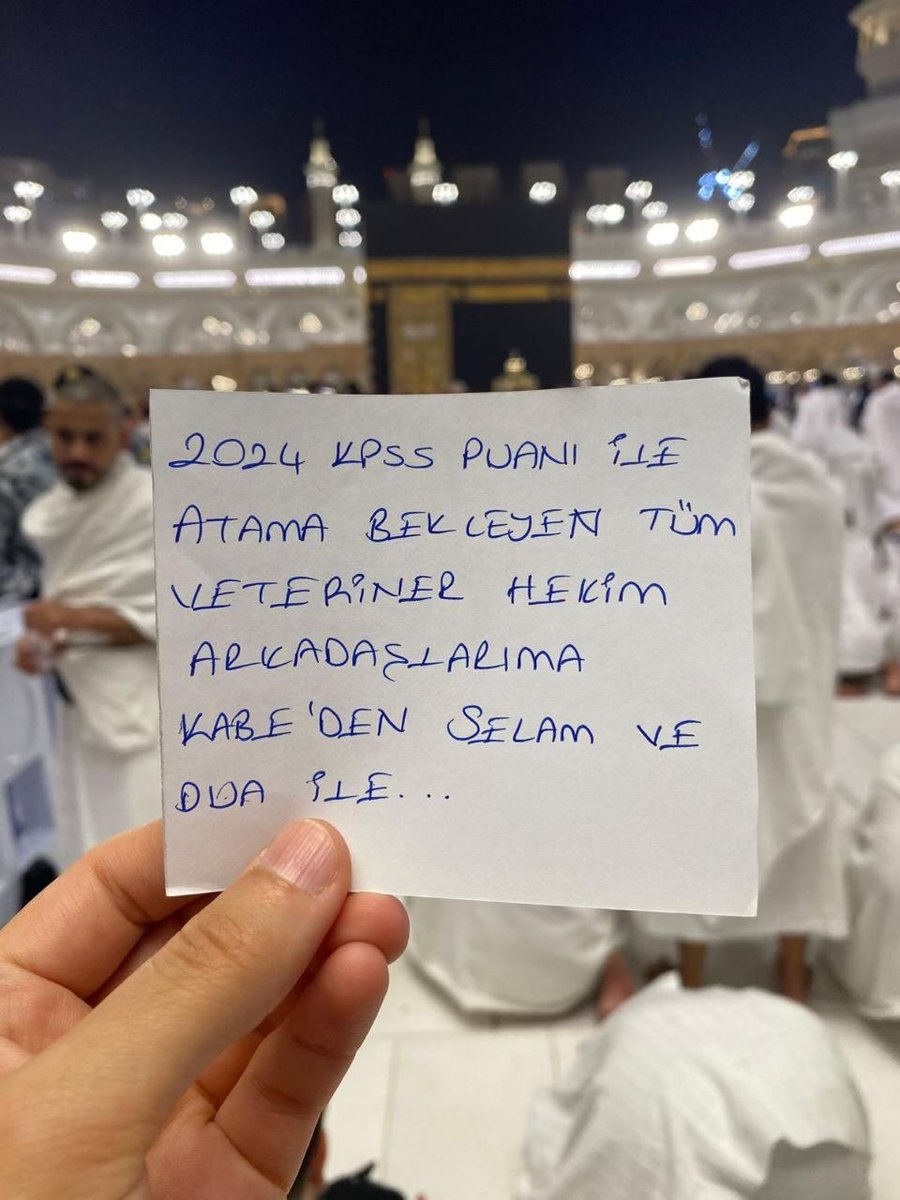 2024 KPSS PUANI İLE
ATAMA BEKLEYEN TÜM
VETERİNER HEKİM
ARKADAŞLARIMA
KABE'DEN SELAM VE
DUA İLE...